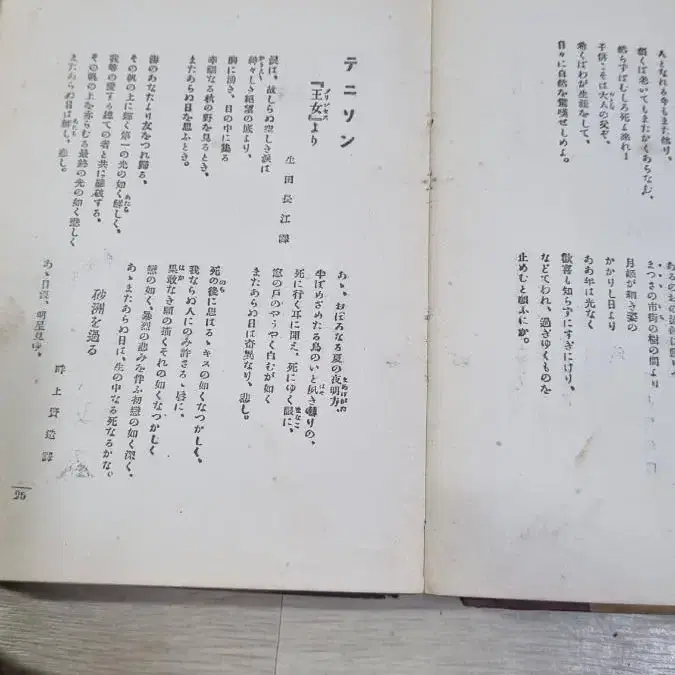 人となれる今もまた然り、
願くば老いてもまたかくあらなむ、
然らずばむしろ死よ来れ！
子供こそは大人の父ぞ、
希くばわが生涯をして、
日々に自然を驚嘆せしめよ。
まつさの市街の樹の間より
月経が細き姿の
かかりし日より
ああ年は光なく
歓喜も知らずにすぎにけり、
などてわれ、過ぎゆくものを
止めむと願ふにか。
テニソン
『王女』より
プリンセス
生田長江譯
涙は、故しらぬ空しき涙は
神々しき絶望の底より、
胸に湧き、目の中に集る
幸福なる秋の野を見るとき、
またあらぬ日を思ふとき。
海のあなたより友をつれ歸る、
その帆の上に輝く第一の光の如く鮮しく、
我等の愛する總ての者と共に
その帆の上を赤らむる最終の光の如く悲しく
またあらぬ日は鮮し、悲し。
あゝ、おぼろなる夏の夜明方、
半ばめざめたる鳥のいと夙き囀りの、
死に行く耳に聞え、死にゆく眼に、
窓の戸のやうやく白むが如く
またあらぬ日は奇異なり、悲し。
死の後に思はるゝキスの如くなつかしく、
我ならぬ人にのみ許さるゝ唇に、
果敢なき願の描くそれの如くなつかしく
戀の如く、暴烈の悲みを伴ふ初戀の如く深く、
あゝまたあらぬ日は、生の中なる死なるかな。
砂洲を過る
上賢造譯
あゝ日没、明星見ゆ、
29